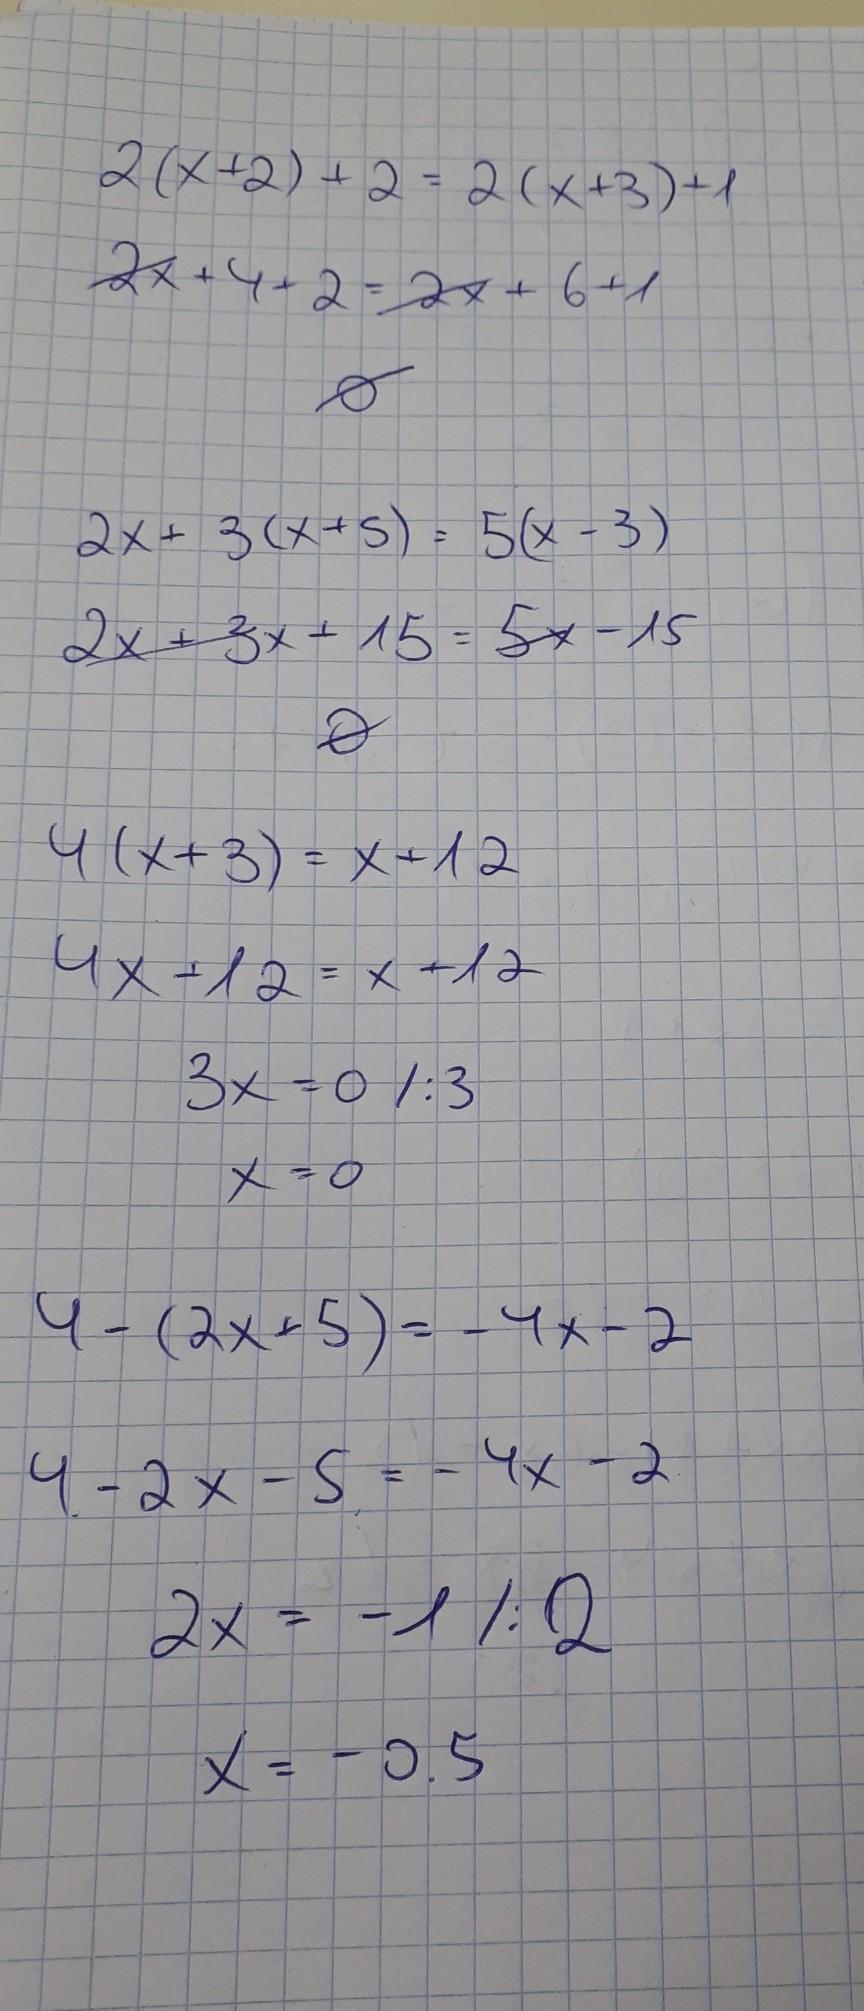 2(x+2)+2=2(x+3)+1
2x+4+2=2x+6+1
∅
2x+3(x+5)=5(x-3)
2x+3x+15=5x-15
∅
4(x+3)=x+12
4x+12=x+12
3x=0 /:3
x=0
4-(2x+5)=-4x-2
4-2x-5=-4x-2
2x=-1 /:2
x=-0.5